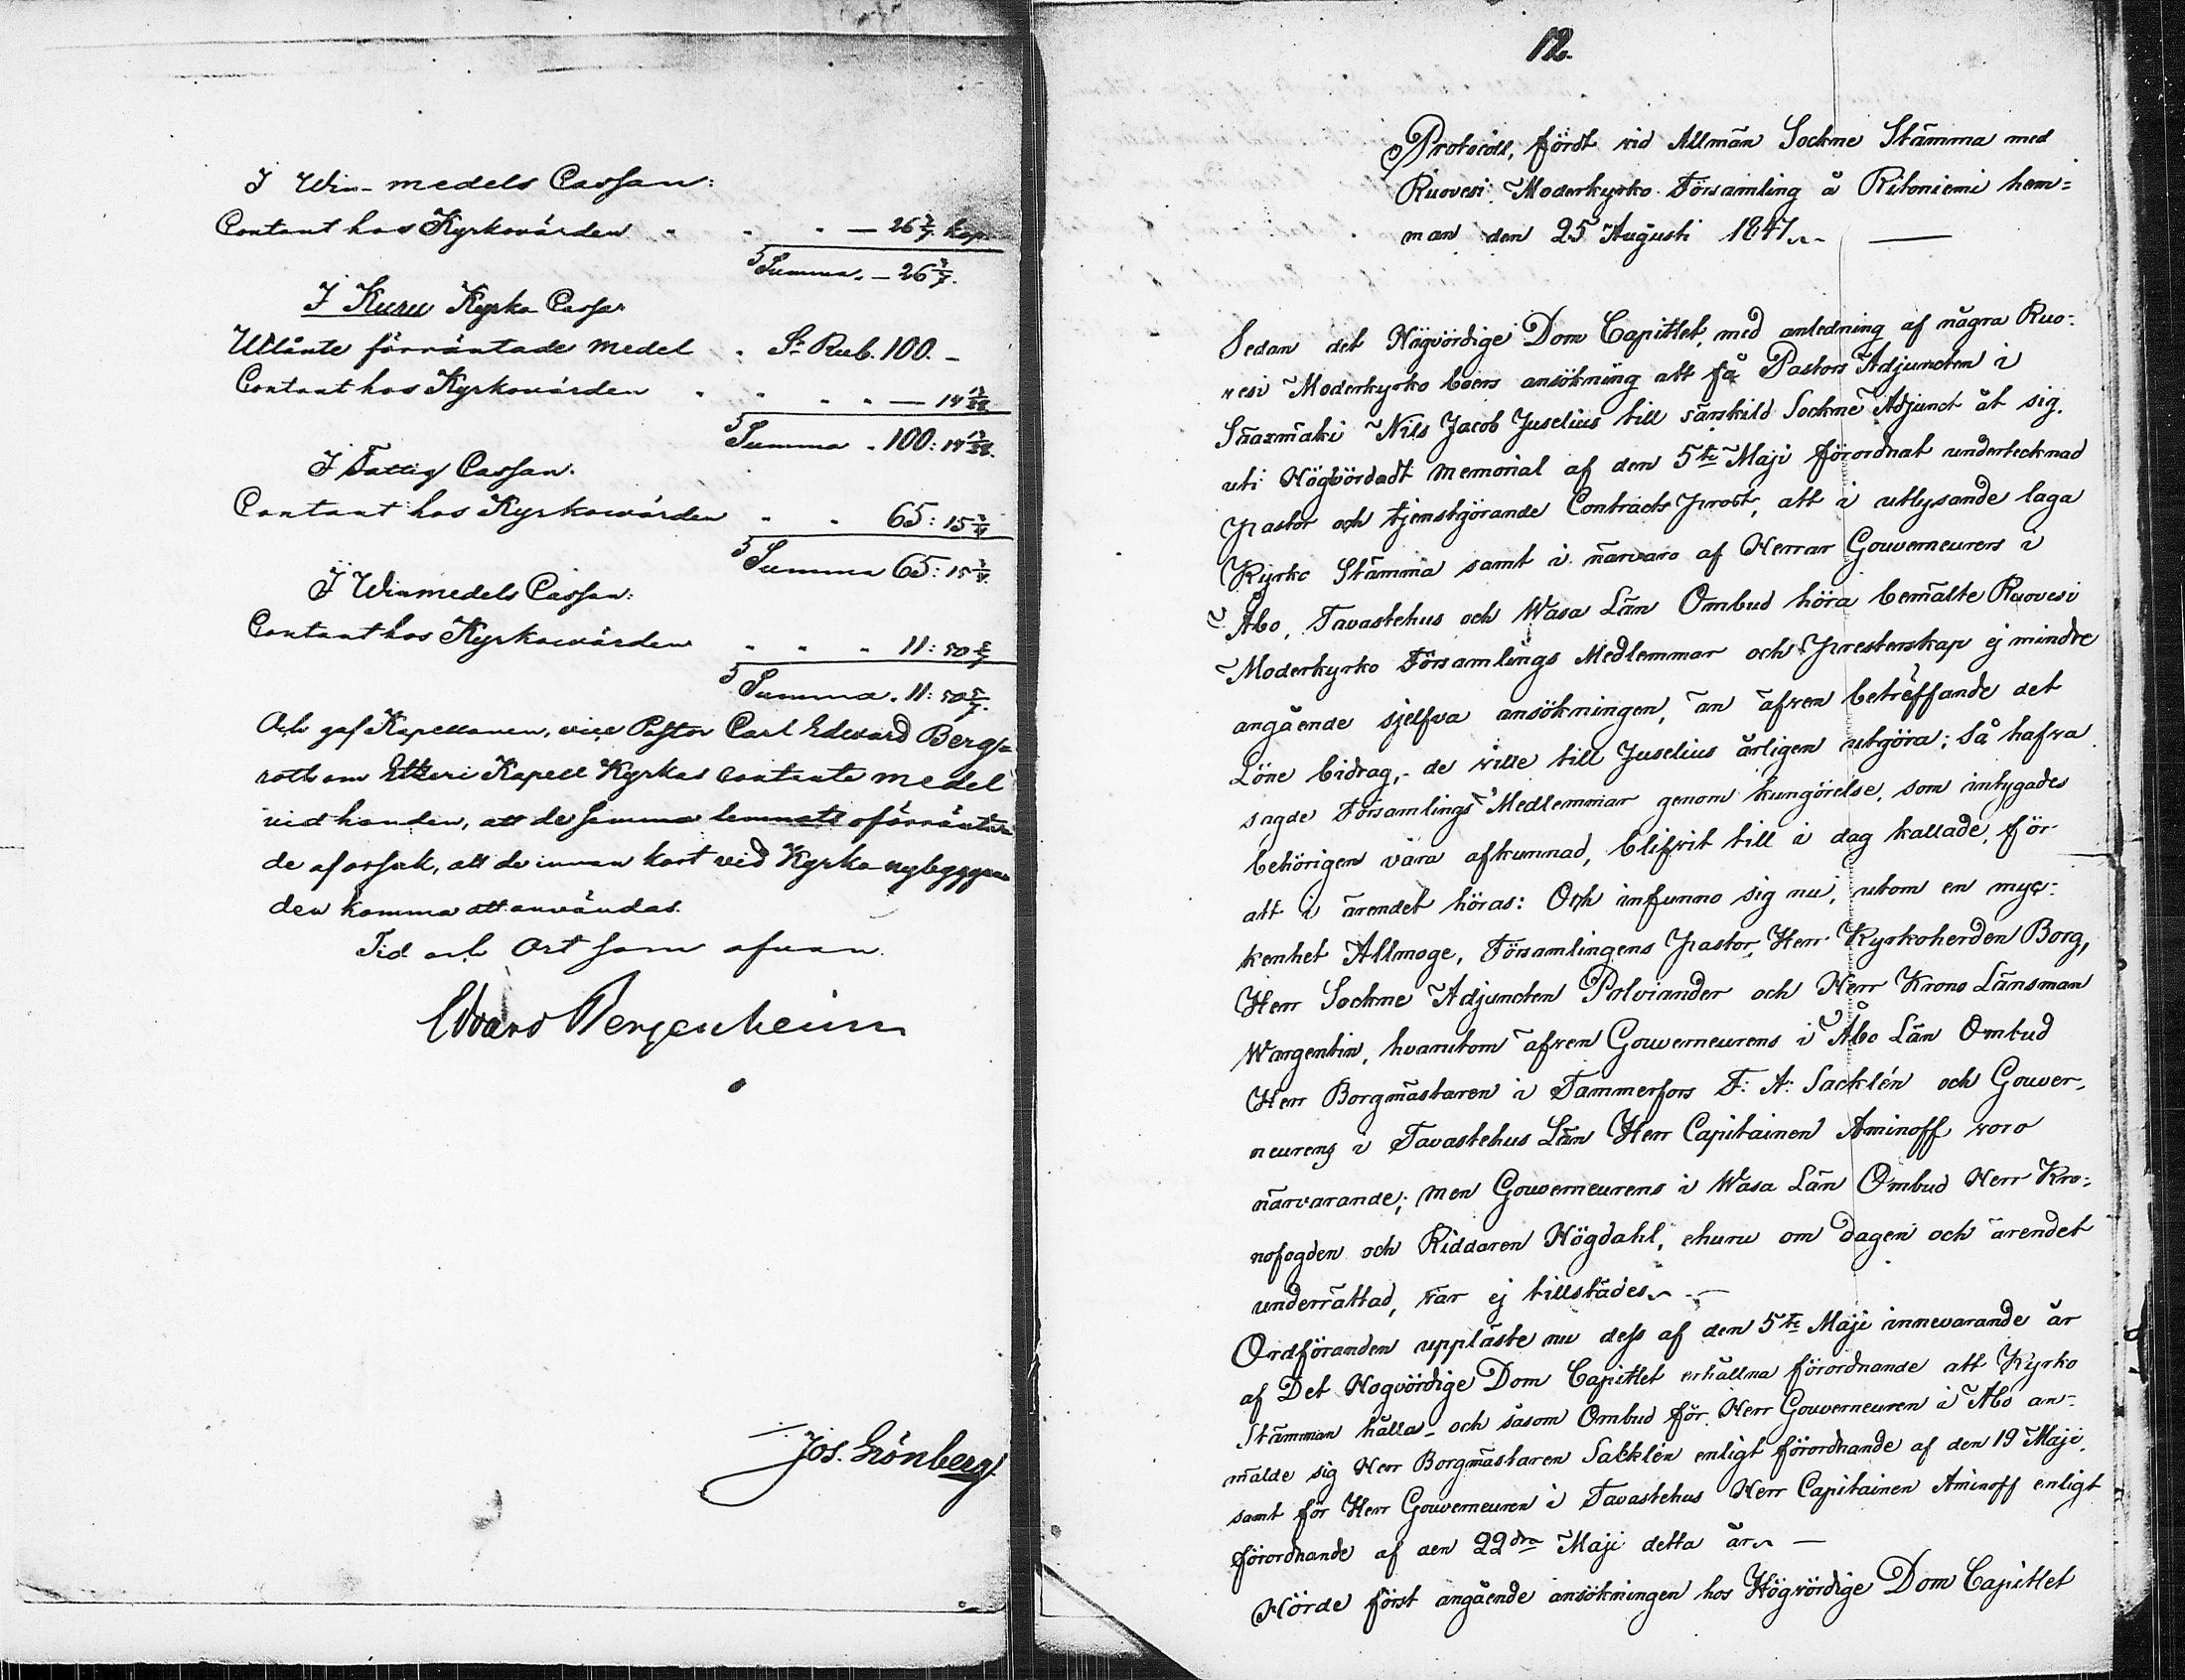 I Win-medels Cassan:
Contant hos Kyrkovärden " " " — 26 2/7 kop.
Summa. — 26 2/7.
I Kuru Kyrko Cassa
Utlånte förräntade medel . S:r Rub. 100. –
Contant hos Kyrkovärden " " " " — 14
Summa . 100: 14
I Fattig Cassan.
Contant hos Kyrkowärden " " 65: 15
Summa 65: 15
I Winmedels Cassan:
Contant hos Kyrkowärden " " " 11: 50 5/7
Summa . 11: 50 5/7.
Och gaf Kapellanen, vice Pastor Carl Edvard Berg-
roth om Etseri Kapell Kyrkas contanta medel
vid handen, att de samma lemnats oförränta-
de af orsak, att de innan kort vid Kyrko nybyggna-
den komma att användas.
Tid och Ort som ofvan.
Edvard Bergenheim
Jos. Grönberg.
12.
Protocoll, fördt vid Allmän Sockne Stämma med
Ruovesi Moderkyrko Församling å Ritoniemi hem=
man den 25 Augusti 1847. —
Sedan det Högvördige Dom Capitlet, med anledning af några Ruo-
vesi Moderkyrko boers ansökning att få Pastors Adjuncten i
Säaxmäki Nils Jacob Juselius till särskild Sockne Adjunct åt sig,
uti Högvördadt memorial af den 5te Maji förordnat undertecknad
Pastor och tjenstgörande Contracts Prost, att i utlysande laga
Kyrko Stämma samt i närvaro af Herrar Gouverneurers i
Åbo, Tavastehus och Wasa Län Ombud höra bemälte Ruovesi
Moderkyrko Församlings Medlemmar och Presterskap ej mindre
angående sjelfva ansökningen, än äfven beträffande det
Löne bidrag, de ville till Juselius årligen utgöra; så hafva
sagde Församlings Medlemmar genom kungörelse, som intygades
behörigen vara afkunnad, blifvit till i dag kallade, för
att i ärendet höras: Och infunno sig nu, utom en myc-
kenhet Allmoge, Församlingens Pastor, Herr Kyrkoherden Borg,
Herr Sockne Adjuncten Polviander och Herr Krono Länsman
Wargentin, hvarutom äfven Gouverneurens i Åbo Län Ombud
Herr Borgmästaren i Tammerfors F: A: Sacklén och Gouver-
neurens i Tavastehus Län Herr Capitainen Aminoff voro
närvarande; men Gouverneurens i Wasa Län Ombud Herr Kro-
nofogden och Riddaren Högdahl, ehuru om dagen och ärendet
underrättad, var ej tillstädes. —
Ordföranden uppläste nu dess af den 5te Maji innevarande år
af Det Högvördige Dom Capitlet erhållna förordnande att Kyrko
Stämman hålla, och såsom Ombud för Herr Gouverneuren i Åbo an-
mälde sig Herr Borgmästaren Sacklén enligt förordnande af den 19 Maji,
samt för Herr Gouverneuren i Tavastehus Herr Capitainen Aminoff enligt
förordnande af den 22dra Maji detta år. —
Hörde först angående ansökningen hos Högvördige Dom Capitlet